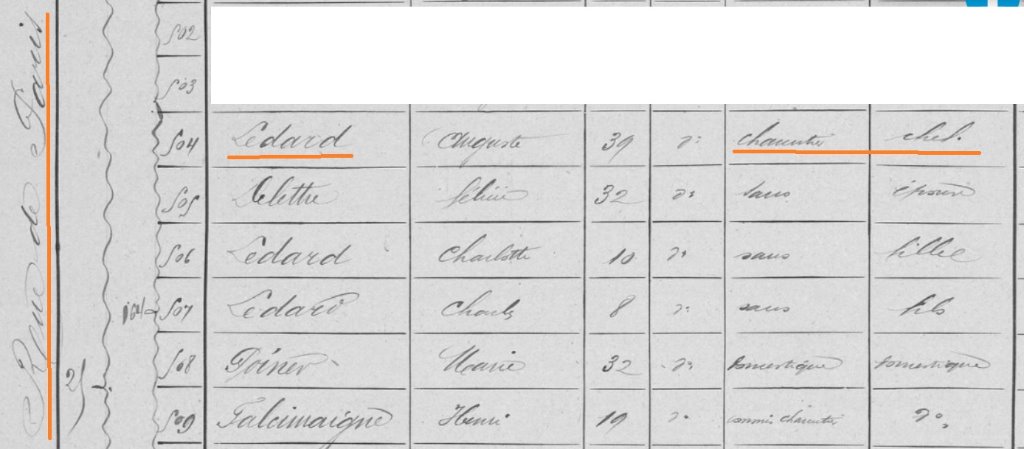 Rue de Paris
502
503
504 Ledard Auguste 39 d° chef
505 Delettre 32 d° sans épouse
506 Ledard Charlotte 10 d° sans fille
507 Ledard Charles 8 d° sans fils
508 Poirier Marie 32 d° domestique domestique
21
509 Falaimaigne Henri 19 d° commis charcutier d°